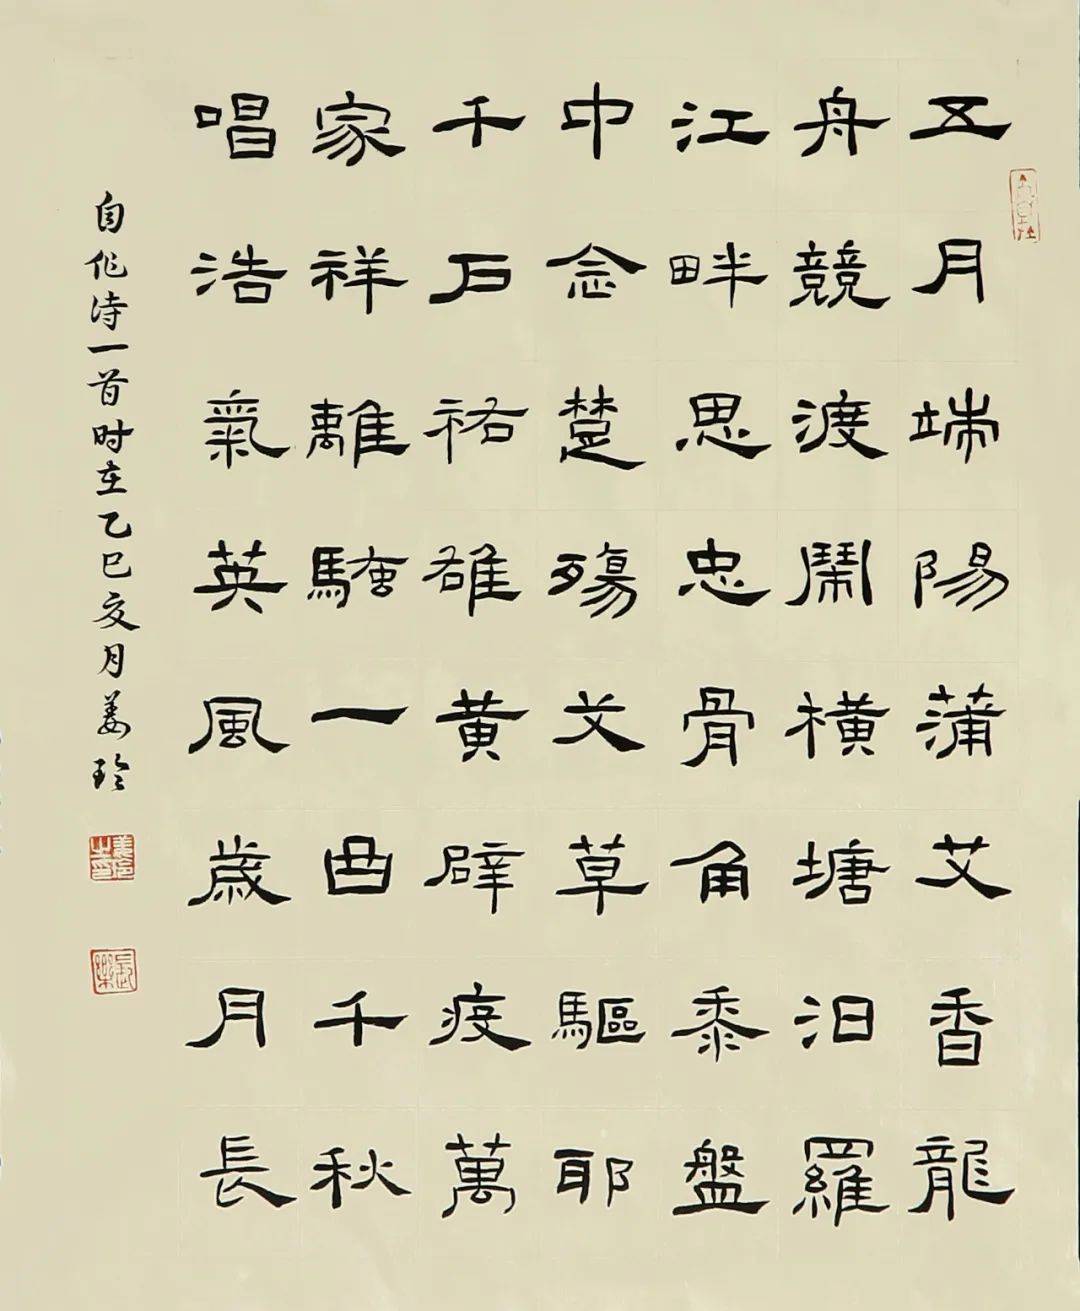 五月端陽蒲艾香龍
舟競渡鬧橫塘汨羅
江畔思忠骨角黍盤
中念楚殤艾草驅耶
千戶祐雄黃辟疫萬
家祥離騷一曲千秋
唱浩氣英風歲月長
自作诗一首时在乙巳夏月姜玲
長樂